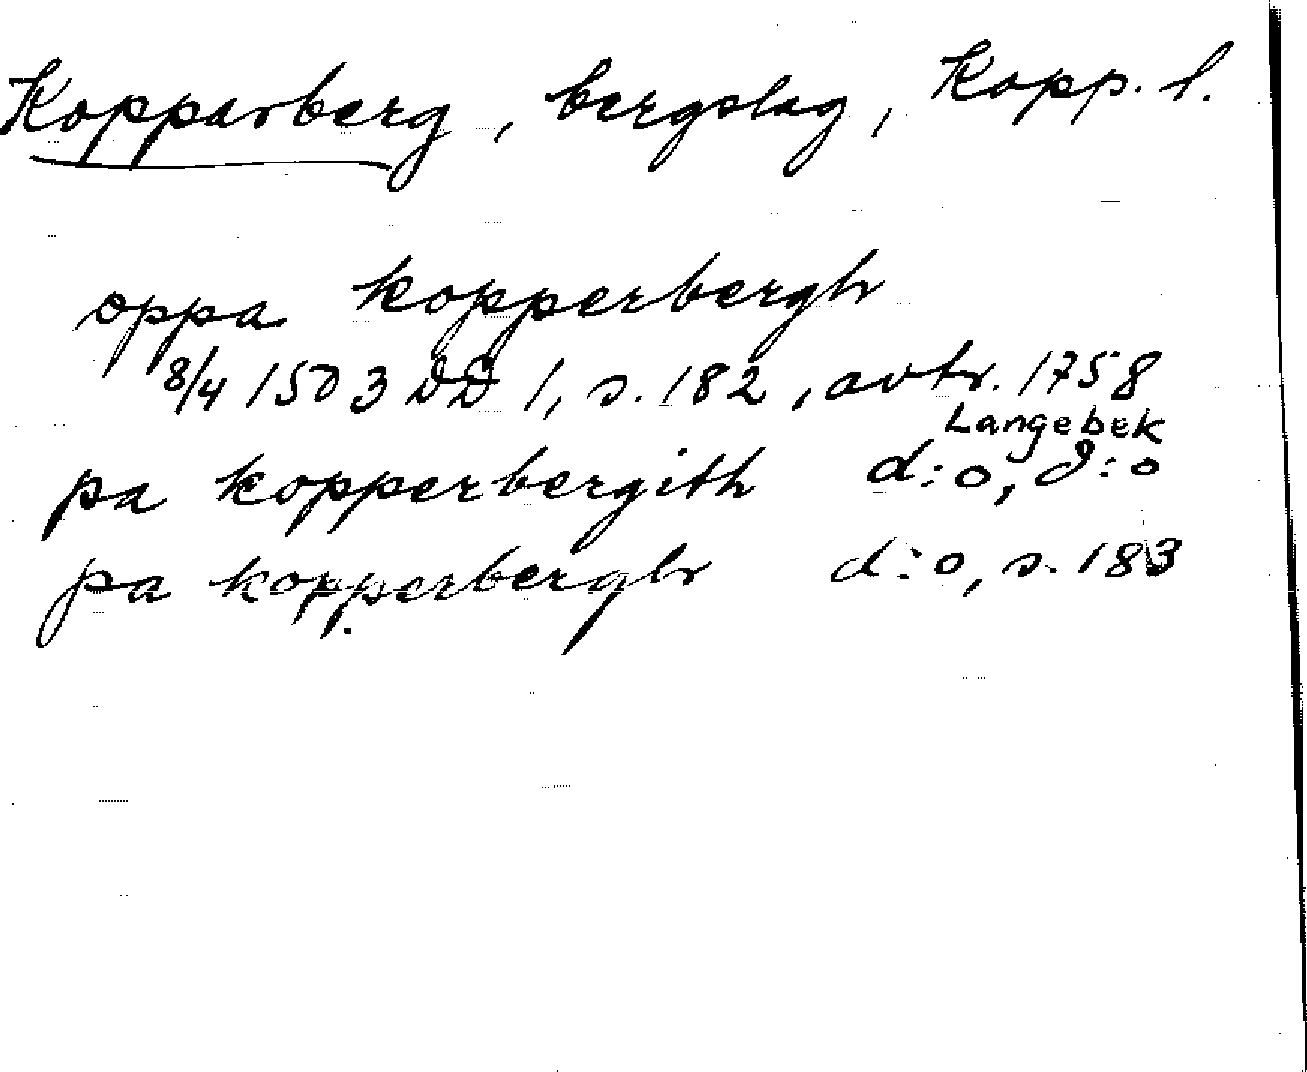 Kopparberg, bergslag, Kopp. l.
oppa kopperbergh
8/4 1503 DD 1, s. 182, avtr. 1758
Langebek
pa kopperbergith d:o, d:o
pa kopperbergh d:o, s. 183